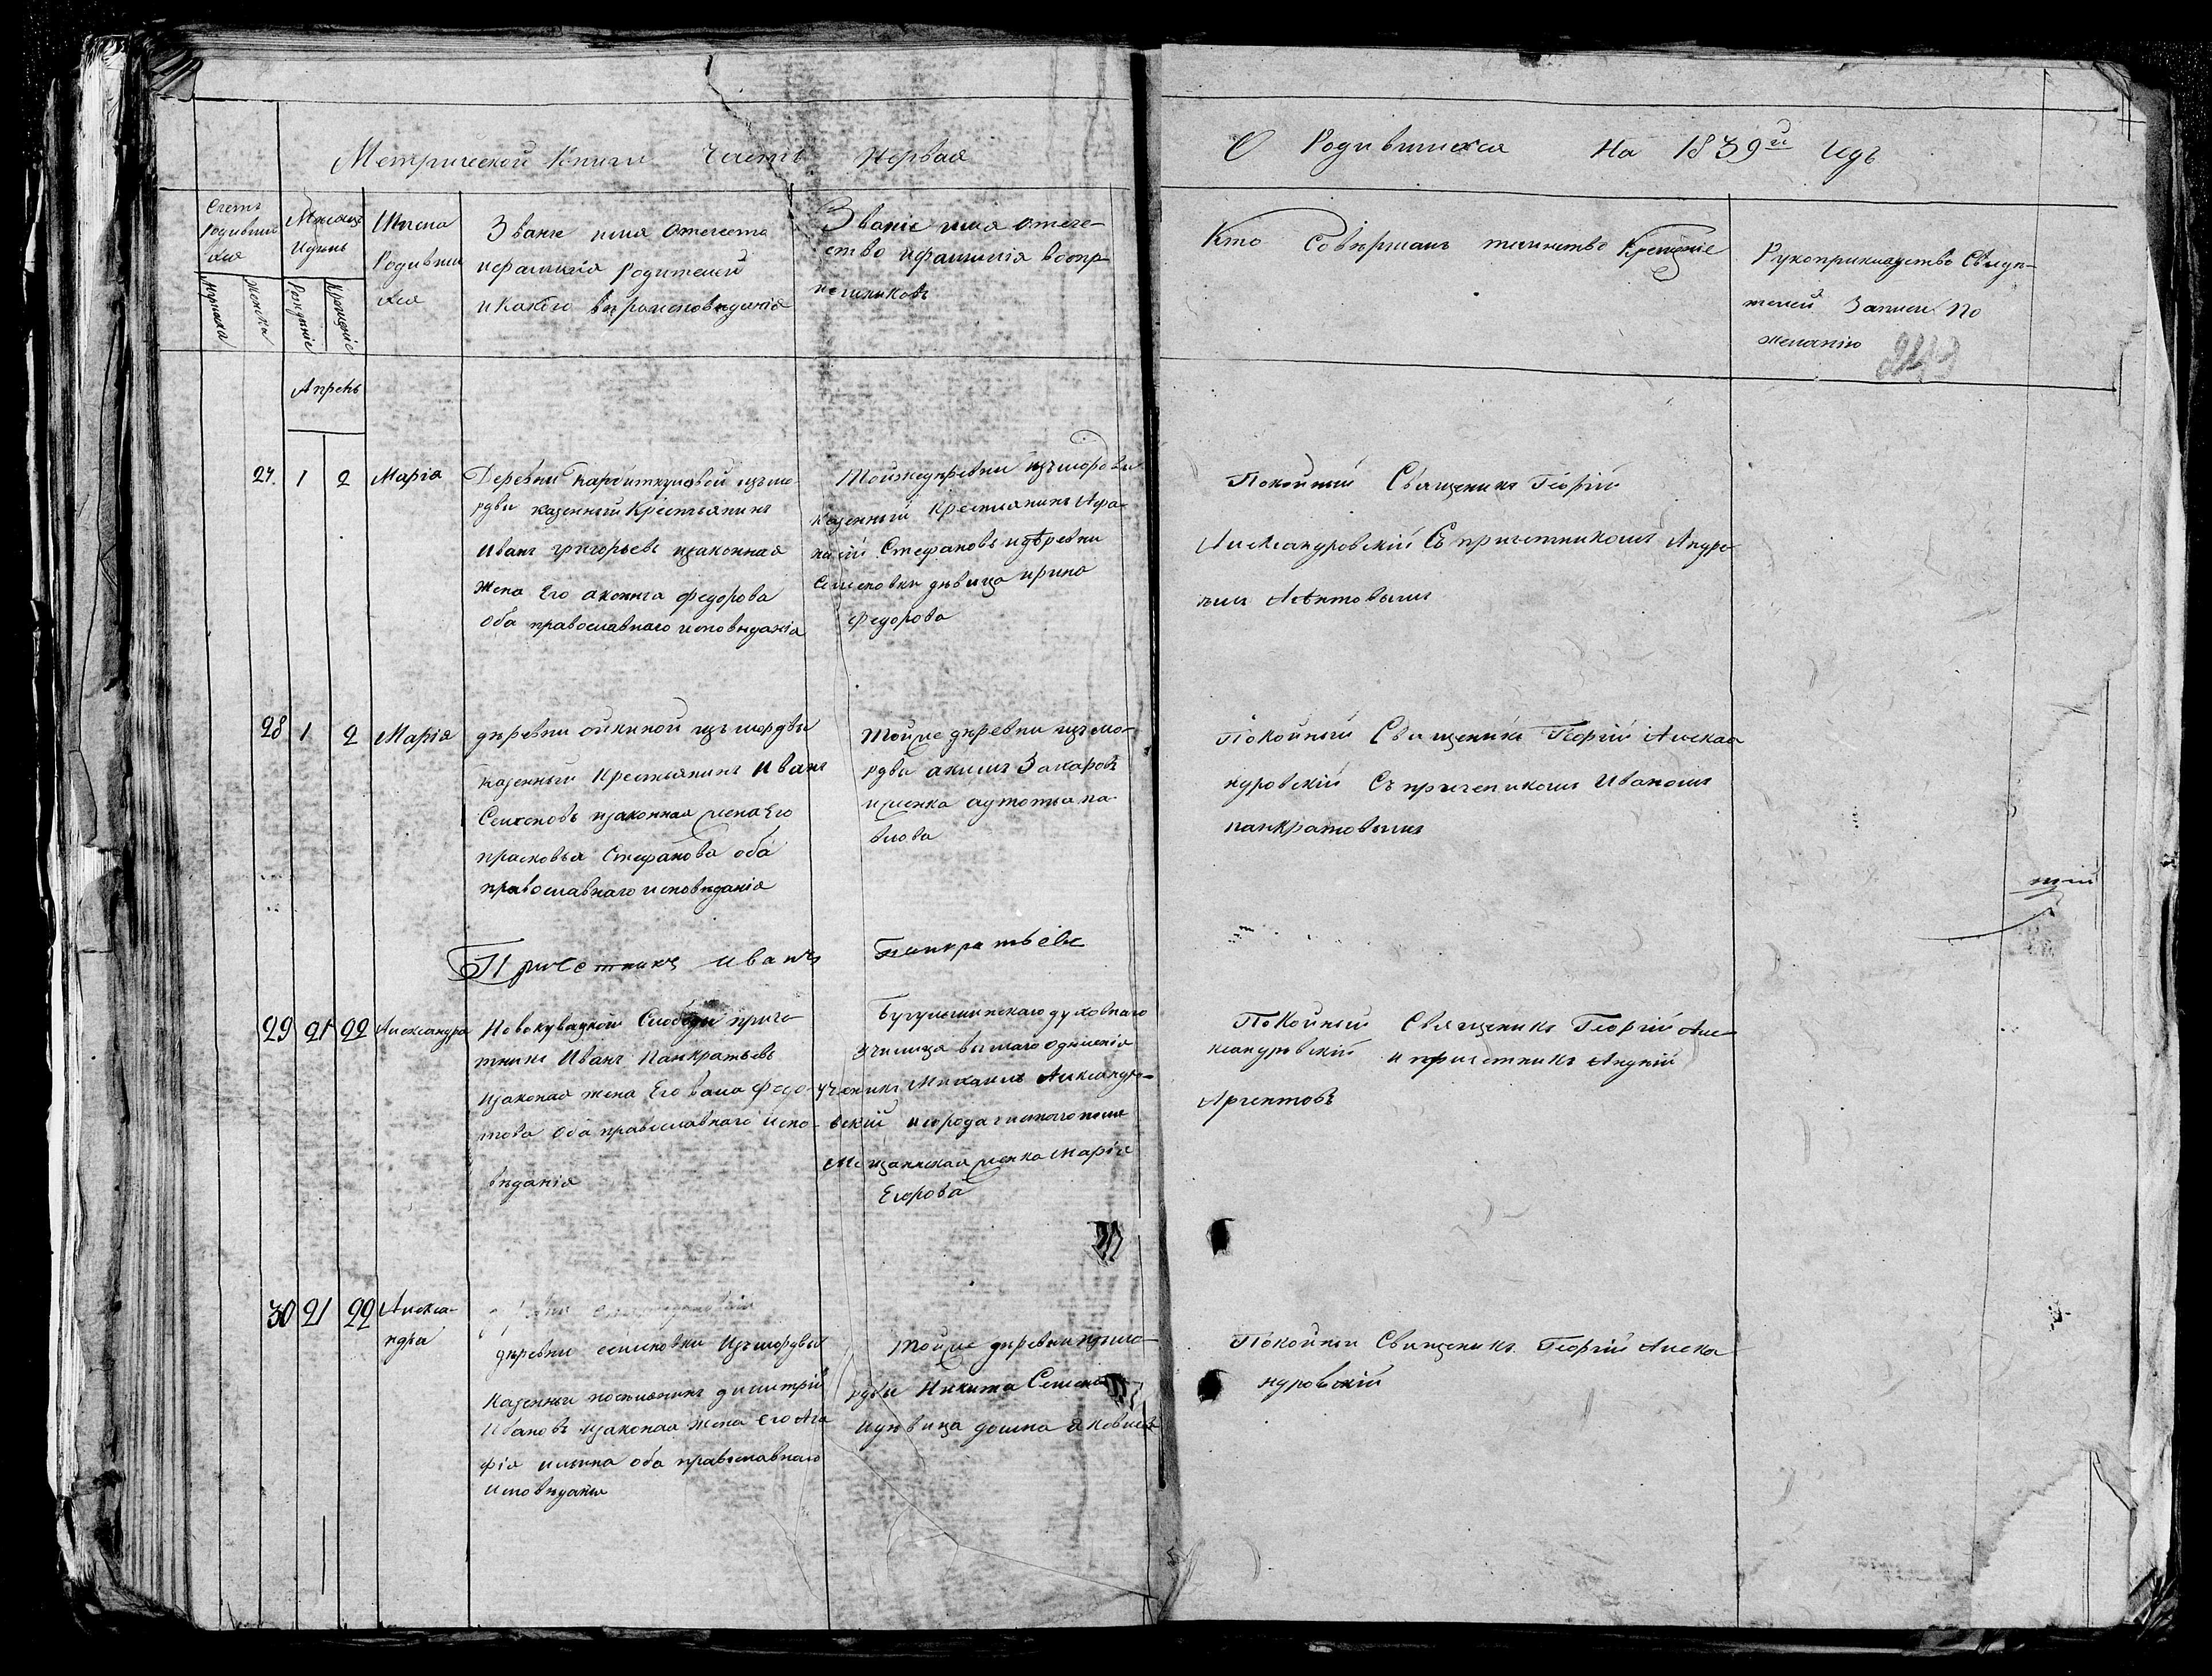 Метрической Книги Часть Первая
О Родившихся На 1839й Годъ
Счетъ
родивших
ися
Мѣсяцъ
и день
Имена
Родивши
хся
Званіе имя отечества
и фамилія родителей
и какого вѣроисповѣданія
Званіе имя отече-
ство и фамилія воспр-
иемниковъ
Кто Совѣршалъ таинство Крещеніе
Рукоприкладство Свидѣ-
телей Записи По
желанію
Мужеска
женска
Рожденіе
Крещеніе
Апрель
27 1 2 Марія
Деревни изъ мо-
рдвы казенный Крестьянинъ
Иванъ григорьевъ и законная
жена Его федорова
оба православнаго исповеданія
Той же деревни изъ мордвы
казенный Крестьянинъ Афа-
насій Стефановъ и деревни
Семеновки дѣвица ирина
федорова
Покойный Священикъ Георгій
Александровскій Съ причетникомъ Андре
28 1 2 Марія
деревни ойкиной изъ мордвы
казенный Крестьянинъ Иванъ
Семеновъ и законная жена Его
прасковья Стефанова оба
православнаго исповѣданія
той же деревни изъ мо-
рдвы акимъ Захаровъ
и женка па-
влова
Покойный Священикъ Георгій Алекса
ндровскій Съ причетникомъ Иваномъ
панкратовымъ
Причетникъ Иванъ Панкратьевъ
29 21 22 Александра
Новокувацкой Слободы приче-
тникъ Иванъ Панкратьевъ
и законая жена Его Федо-
това оба православнаго испо-
вѣданія
Бугульминскаго духовнаго
училища высшаго одѣленія
ученикъ Михаилъ Александро-
вскій и города
Мещанская женка Марія
Егорова
Покойный Священикъ Георгій Але
ксандровскій и причетникъ Андрей
Аргентовъ
30 21 22 Алекса-
ндра
деревни семеновки Изъ мордвы
Казенный димитрій
Ивановъ и законая жена его Ага
фія ильина оба православнаго
исповѣданія
той же деревни изъ мо-
рдвы Никита Семено
и дѣвица домна яковлев
Покойный Священикъ Георгій Алекса
ндровскій